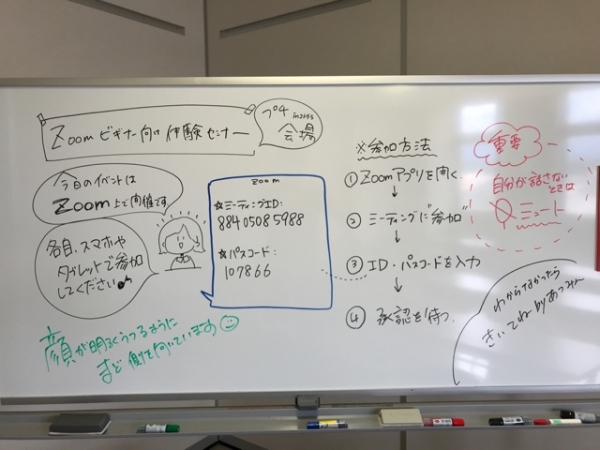 Zoomビギナー向け体験セミナー
プチ
会場
今日のイベントは
Zoom上で開催です
各自、スマホや
タブレットで参加
してください
顔が明るくうつるように
まど側を向いています
zoom
☆ミーティングID:
88405085988
☆パスコード:
107866
※参加方法
①Zoomアプリを開く
↓
②ミーティングに"参加"
↓
③ID・パスコードを入力
↓
④承認を待つ
重要
自分が話さない
ときは
ミュート
わからなかったら
きいてね by あつみん